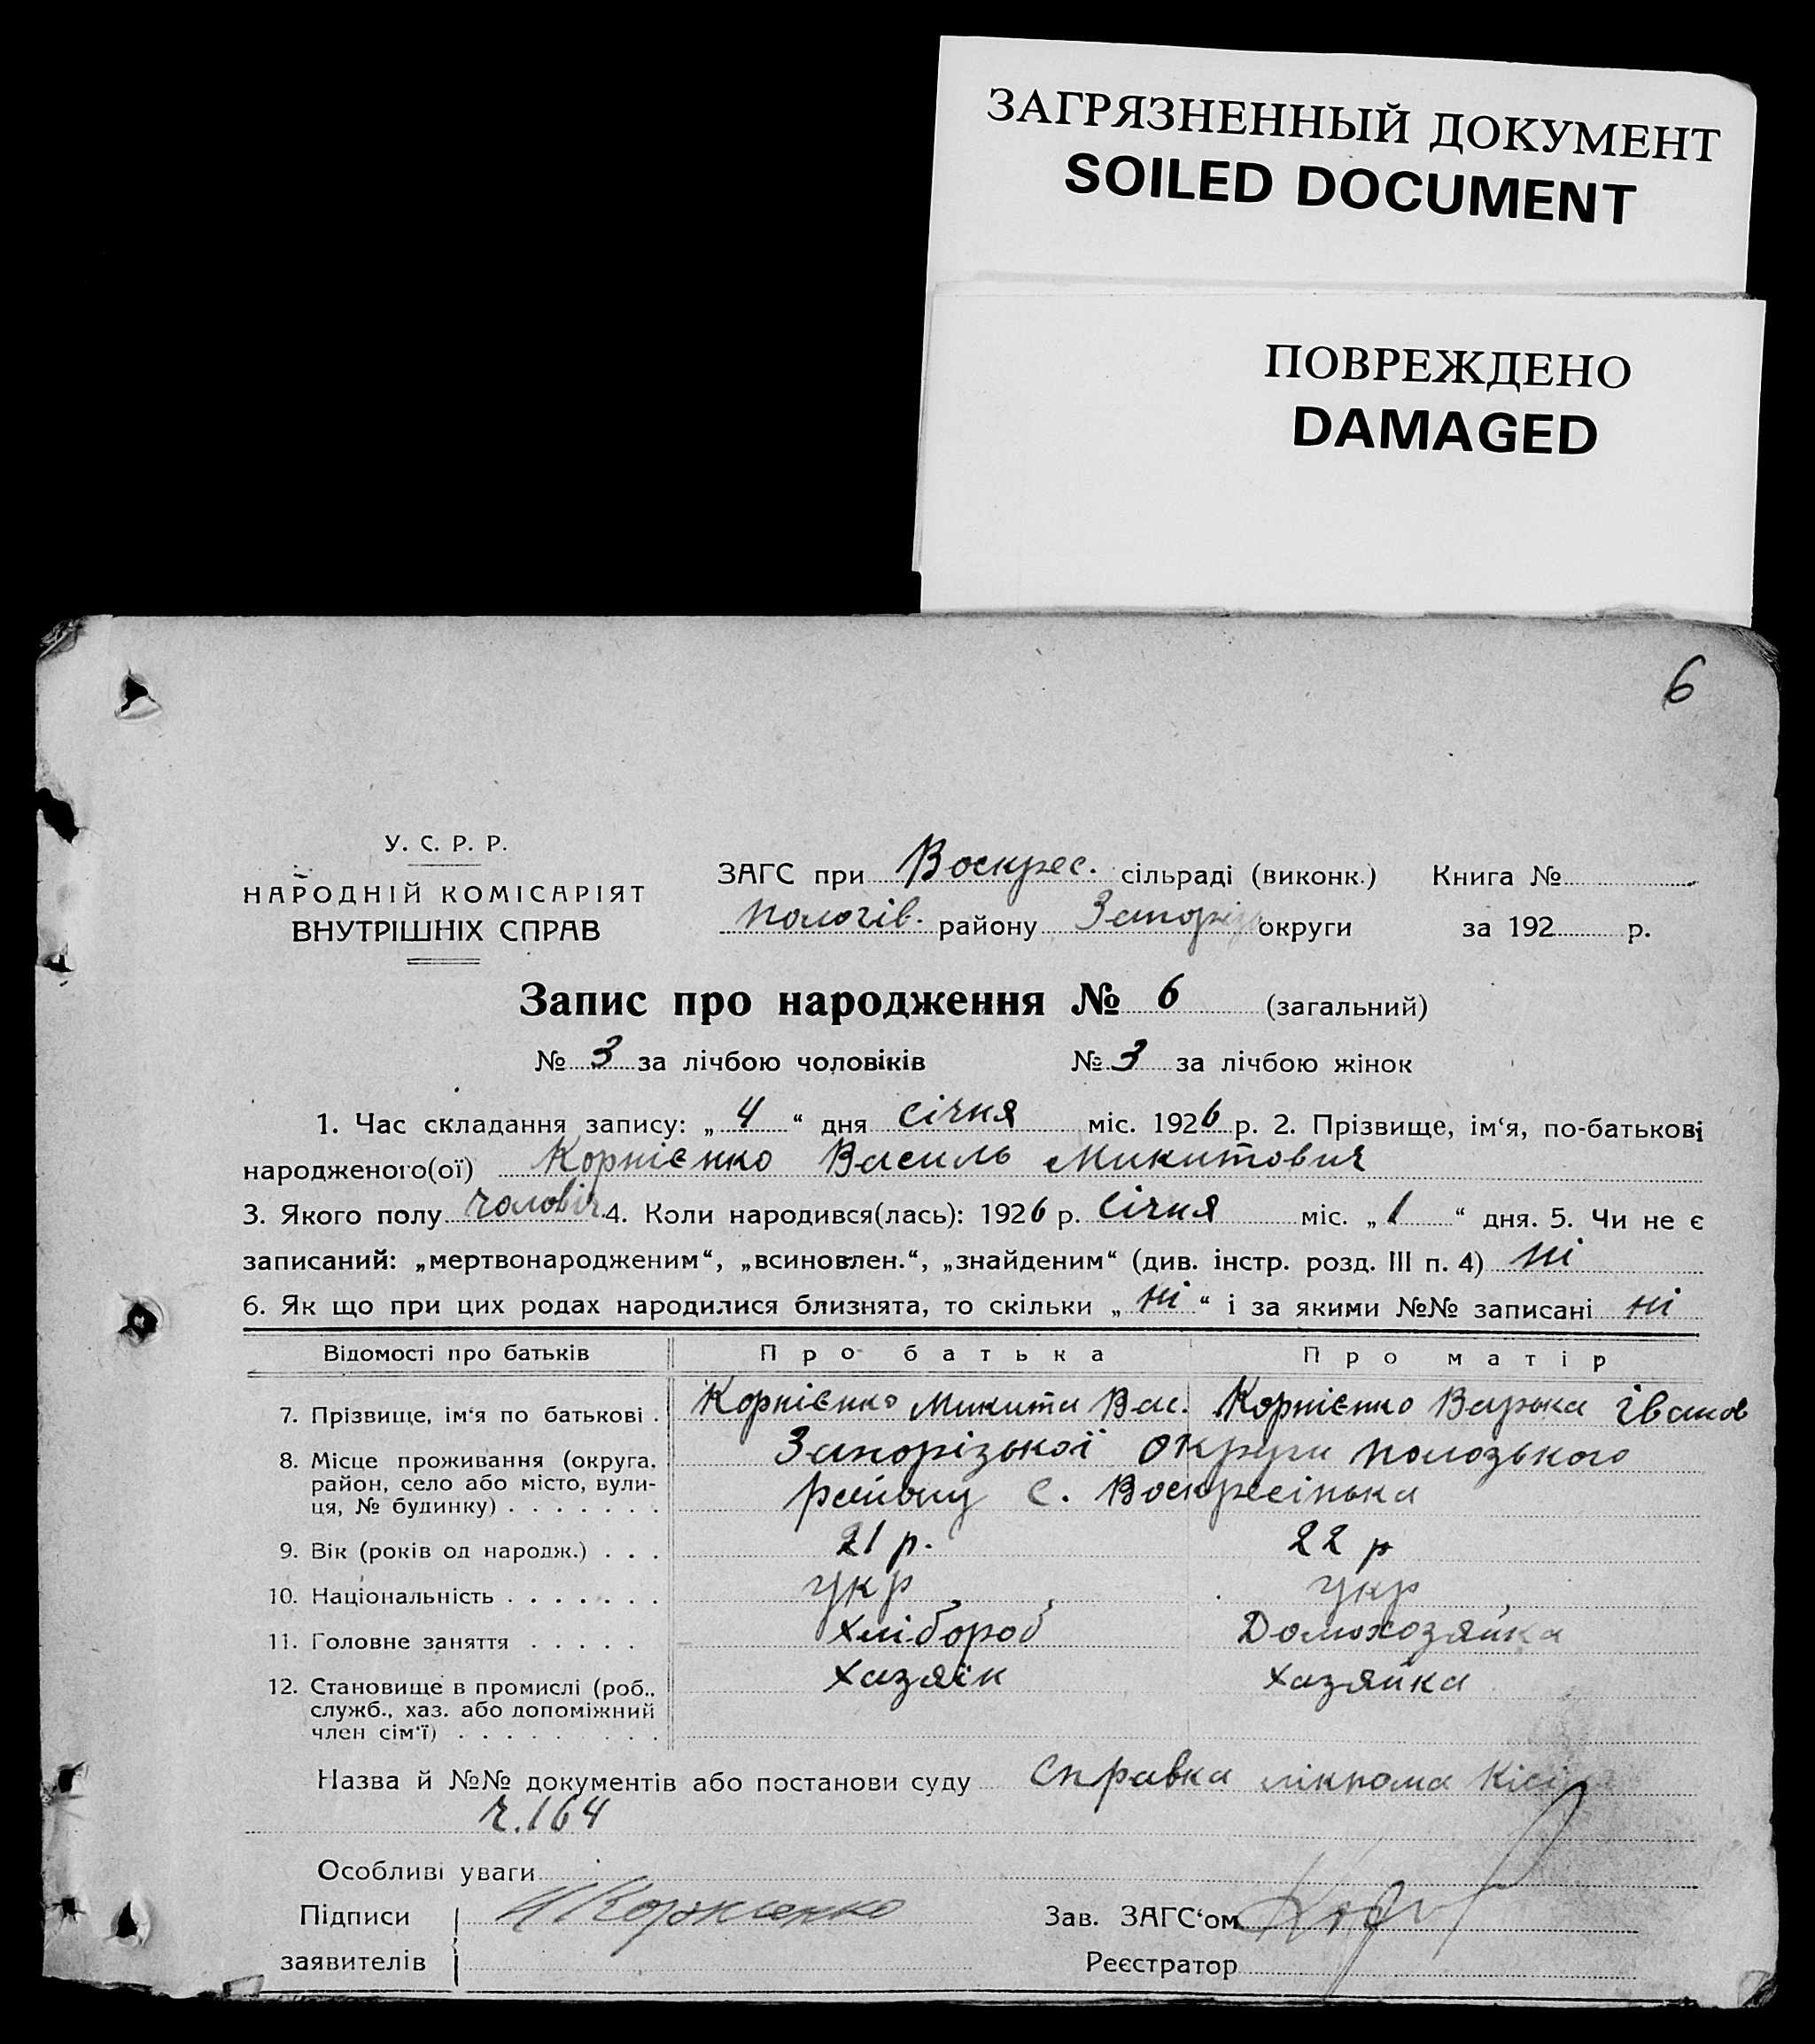 ЗАГРЯЗНЕННЫЙ ДОКУМЕНТ
SOILED DOCUMENT
ПОВРЕЖДЕНО
DAMAGED
6
У. С. Р. Р.
НАРОДНІЙ КОМІСАРІЯТ
ВНУТРІШНІХ СПРАВ
ЗАГС при Воскрес. сільраді (виконк.) Книга №
Пологів. району Запоріз округи за 192 р.
Запис про народження № 6 (загальний)
№ 3 за лічбою чоловіків № 3 за лічбою жінок
1. Час складання запису: „ 4 “ дня січня міс. 1926 р. 2. Прізвище, ім‘я, по-батькові
народженого(ої) Корнієнко Василь Микитович
3. Якого полу чоловіч. 4. Коли народився(лась): 1926 р. січня міс. „ 1 “ дня. 5. Чи не є
записаний: „мертвонародженим“, „всиновлен.“, „знайденим“ (див. інстр. розд. III п. 4) ні
6. Як що при цих родах народилися близнята, то скільки „ ні “ і за якими №№ записані ні
Відомості про батьків Про батька Про матір
7. Прізвище, ім‘я по батькові . Корнієнко Микита Вас. Корнієнко Варька Іванов
8. Місце проживання (округа, район, село або місто, вули- ця, № будинку) . . . . . . . Запорізької округи Полозького
району с. Воскресінька
9. Вік (років од народж.) . . . 21 р. 22 р
10. Національність . . . . . . . укр укр
11. Головне заняття . . . . . хлібороб Домохозяйка
12. Становище в промислі (роб., служб., хаз. або допоміжний член сім‘ї) . . . . . . . . . хазяїн хазяйка
Назва й №№ документів або постанови суду справка лікпома
ч. 164
Особливі уваги
Підписи Корнієнко Зав. ЗАГС‘ом
заявителів Реєстратор